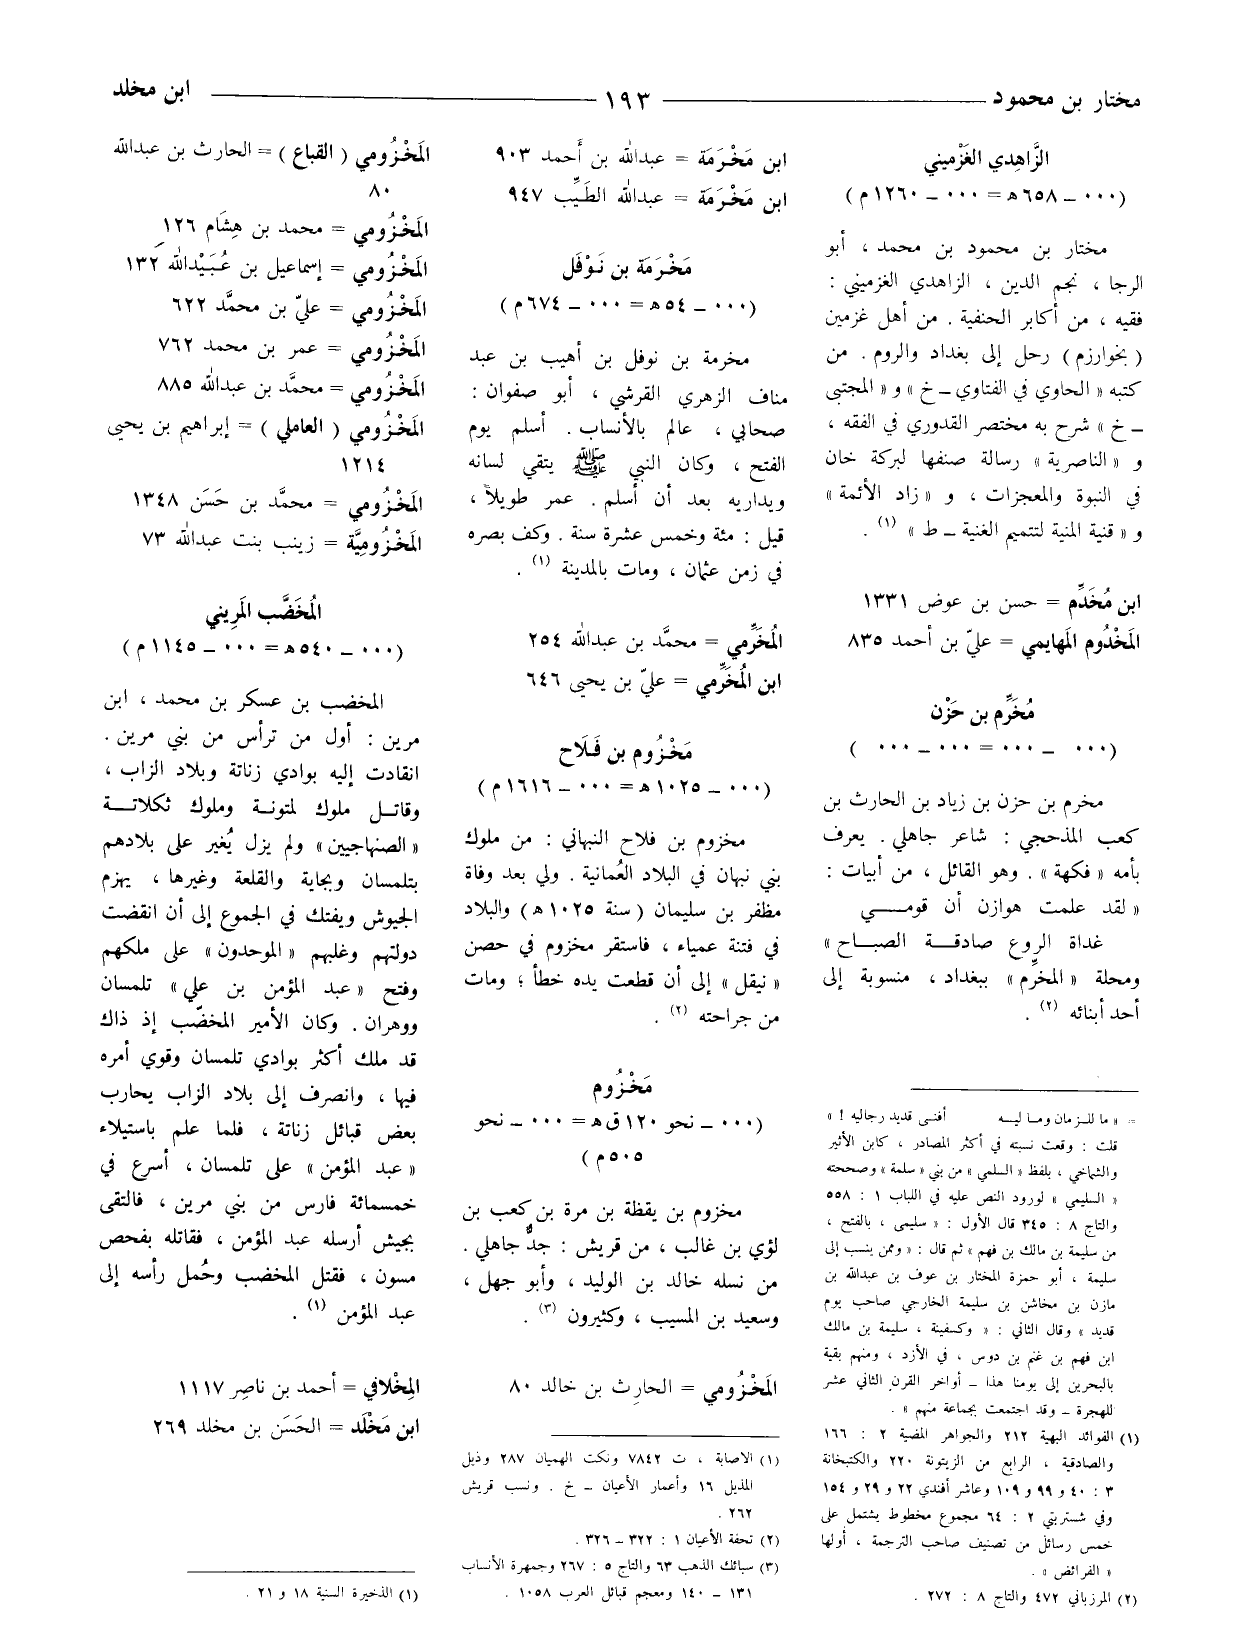 مختار بن محمود
١٩٣
ابن مخلد
الزَّاهِدي الغَزْميني
(٠٠٠ ــ ٦٥٨ هـ = ٠٠٠ ــ ١٢٦٠ م)
مختار بن محمود بن محمد ، أبو
الرجا ، نجم الدين ، الزاهدي الغزميني :
فقيه ، من أكابر الحنفية . من أهل غزمين
( بخوارزم ) رحل إلى بغداد والروم . من
كتبه « الحاوي في الفتاوي ــ خ » و « المجتبى
ــ خ » شرح به مختصر القدوري في الفقه ،
و « الناصرية » رسالة صنفها لبركة خان
في النبوة والمعجزات ، و « زاد الأئمة »
و « قنية المنية لتتميم الغنية ــ ط » (١) .
ابن مُخَدِّم = حسن بن عوض ١٣٣١
المَخْدُوم المَهايمي = عليّ بن أحمد ٨٣٥
مُخَرِّم بن حَزْن
(٠٠٠ ــ ٠٠٠ = ٠٠٠ ــ ٠٠٠ )
مخرم بن حزن بن زياد بن الحارث بن
كعب المذحجي : شاعر جاهلي . يعرف
بأمه « فكهة » . وهو القائل ، من أبيات :
« لقد علمت هوازن أن قومــــي
غداة الروع صادقــة الصباح »
ومحلة « المخرِّم » ببغداد ، منسوبة إلى
أحد أبنائه (٢) .
= « ما للـزمان ومـا ليــه أفنـى قديد رجاليه ! »
قلت : وقعت نسبته في أكثر المصادر ، كابن الأثير
والشماخي ، بلفظ « السلمي » من بني « سلمة » وصححته
« السليمي » لورود النص عليه في اللباب ١ : ٥٥٨
والتاج ٨ : ٣٤٥ قال الأول : « سليمى ، بالفتح ،
من سليمة بن مالك بن فهم » ثم قال : « وممن ينسب إلى
سليمة ، أبو حمزة المختار بن عوف بن عبدالله بن
مازن بن مخاشن بن سليمة الخارجي صاحب يوم
قديد » وقال الثاني : « وكسفينة ، سليمة بن مالك
ابن فهم بن غنم بن دوس ، في الأزد ، ومنهم بقية
بالبحرين إلى يومنا هذا ــ أواخر القرن الثاني عشر
للهجرة ــ وقد اجتمعت بجماعة منهم » .
(١) الفوائد البهية ٢١٢ والجواهر المضية ٢ : ١٦٦
والصادقية ، الرابع من الزيتونة ٢٢٠ والكتبخانة
٣ : ٤٠ و ٩٩ و ١٠٩ وعاشر أفندي ٢٢ و ٢٩ و ١٥٤
وفي شستربتي ٢ : ٦٤ مجموع مخطوط يشتمل على
خمس رسائل من تصنيف صاحب الترجمة ، أولها
« الفرائض » .
(٢) المرزباني ٤٧٢ والتاج ٨ : ٢٧٢ .
ابن مَخْرَمَة = عبدالله بن أَحمد ٩٠٣
ابن مَخْرَمَة = عبدالله الطَيِّب ٩٤٧
مَخْرَمَة بن نَوْفَل
(٠٠٠ ــ ٥٤ هـ = ٠٠٠ ــ ٦٧٤ م)
مخرمة بن نوفل بن أهيب بن عبد
مناف الزهري القرشي ، أبو صفوان :
صحابي ، عالم بالأنساب . أسلم يوم
الفتح ، وكان النبي ﷺ يتقي لسانه
ويداريه بعد أن أسلم . عمر طويلاً ،
قيل : مئة وخمس عشرة سنة . وكف بصره
في زمن عثمان ، ومات بالمدينة (١) .
المُخَرِّمي = محمَّد بن عبدالله ٢٥٤
ابن المُخَرِّمي = عليّ بن يحيى ٦٤٦
مَخْزُوم بن فَلَاح
(٠٠٠ ــ ١٠٢٥ هـ = ٠٠٠ ــ ١٦١٦ م)
مخزوم بن فلاح النبهاني : من ملوك
بني نبهان في البلاد العُمانية . ولي بعد وفاة
مظفر بن سليمان ( سنة ١٠٢٥ هـ ) والبلاد
في فتنة عمياء ، فاستقر مخزوم في حصن
« نيقل » إلى أن قطعت يده خطأ ؛ ومات
من جراحته (٢) .
مَخْزُوم
(٠٠٠ ــ نحو ١٢٠ ق هـ = ٠٠٠ ــ نحو
٥٠٥ م )
مخزوم بن يقظة بن مرة بن كعب بن
لؤي بن غالب ، من قريش : جدٌّ جاهلي .
من نسله خالد بن الوليد ، وأبو جهل ،
وسعيد بن المسيب ، وكثيرون (٣) .
المَخْزُومي = الحارِث بن خالد ٨٠
(١) الاصابة ، ت ٧٨٤٢ ونكت الهميان ٢٨٧ وذيل
المذيل ١٦ وأعمار الأعيان ــ خ . ونسب قريش
٢٦٢ .
(٢) تحفة الأعيان ١ : ٣٢٢ ــ ٣٢٦ .
(٣) سبائك الذهب ٦٣ والتاج ٥ : ٢٦٧ وجمهرة الأنساب
١٣١ ــ ١٤٠ ومعجم قبائل العرب ١٠٥٨ .
المَخْزُومي ( القباع ) = الحارث بن عبدالله
٨٠
المَخْزُومي = محمد بن هِشَام ١٢٦
المَخْزُومي = إسماعيل بن عُبَيْدالله ١٣٢
المَخْزُومي = عليّ بن محمَّد ٦٢٢
المَخْزُومي = عمر بن محمد ٧٦٢
المَخْزُومي = محمَّد بن عبدالله ٨٨٥
المَخْزُومي ( العاملي ) = إبراهيم بن يحيى
١٢١٤
المَخْزُومي = محمَّد بن حَسَن ١٣٤٨
المَخْزُومِيَّة = زينب بنت عبدالله ٧٣
المُخَضَّب المَرِيني
(٠٠٠ ــ ٥٤٠ هـ = ٠٠٠ ــ ١١٤٥ م)
المخضب بن عسكر بن محمد ، ابن
مرين : أول من ترأس من بني مرين .
انقادت إليه بوادي زناتة وبلاد الزاب ،
وقاتــل ملوك لمتونــة وملوك ثكلاتــة
« الصنهاجيين » ولم يزل يُغير على بلادهم
بتلمسان وبجاية والقلعة وغيرها ، يهزم
الجيوش ويفتك في الجموع إلى أن انقضت
دولتهم وغلبهم « الموحدون » على ملكهم
وفتح « عبد المؤمن بن علي » تلمسان
ووهران . وكان الأمير المخضّب إذ ذاك
قد ملك أكثر بوادي تلمسان وقوي أمره
فيها ، وانصرف إلى بلاد الزاب يحارب
بعض قبائل زناتة ، فلما علم باستيلاء
« عبد المؤمن » على تلمسان ، أسرع في
خمسمائة فارس من بني مرين ، فالتقى
بجيش أرسله عبد المؤمن ، فقاتله بفحص
مسون ، فقتل المخضب وحُمل رأسه إلى
عبد المؤمن (١) .
المِخْلافي = أحمد بن ناصِر ١١١٧
ابن مَخْلَد = الحَسَن بن مخلد ٢٦٩
(١) الذخيرة السنية ١٨ و ٢١ .